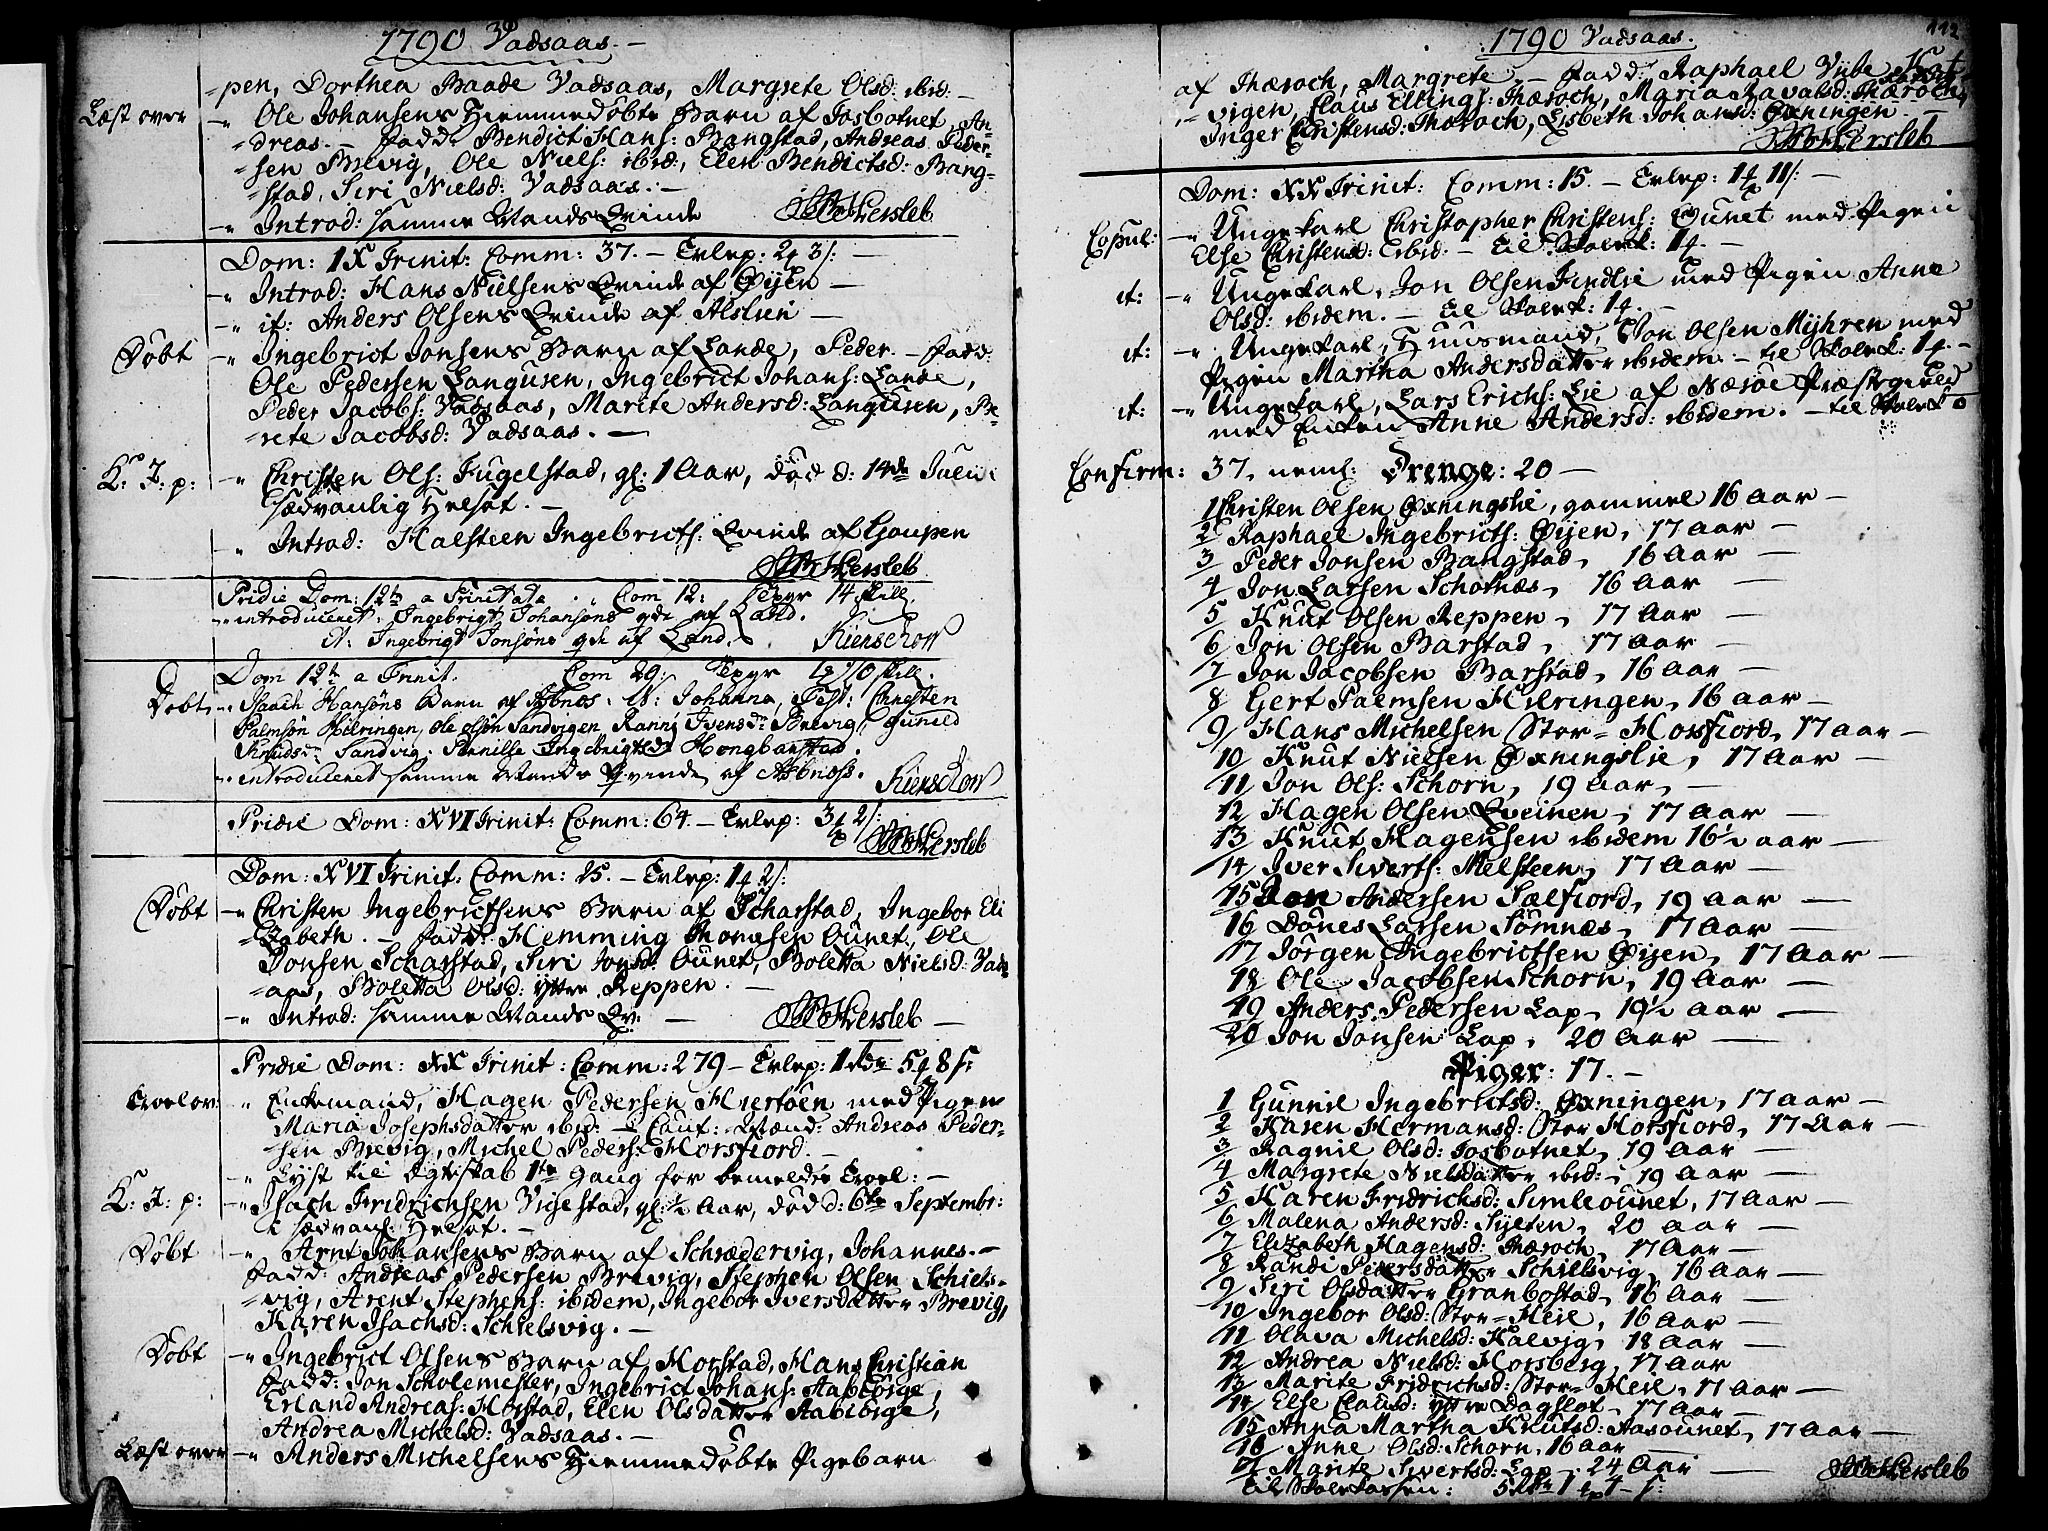 1790 Vadsaas.-
-pen, Dorthea Baade Vadsaas, Margrete Olsd: ibid:-
Læst over -" Ole Johansens Hiemmedøbte Barn af Josbotnet, An-
-dreas.- Fadd: Bendict Hans: Bangstad, Andreas Peder-
-sen Brevig, Ole Niels: ibid:, Elen Bendictsd: Bang-
-stad, Siri Nielsd: Vadsaas.-
-" Introd: samme Mands Qvinde Hersleb
Dom: IX Trinit: Comm: 37.- 2 3/: -
-" Introd: Hans Nielsens Qvinde af Øyen -
-" it: Anders Olsens Qvinde af Alslien -
Døbt -" Ingebrict Jonsens Barn af Lande, Peder.- Fadd:
Ole Pedersen Langusen, Ingebrict Johans: Lande,
Peder Jacobs: Vadsaas, Marite Andersd: Langusen, Be-
-rete Jacobsd: Vadsaas.-
K: J: p: -" Christen Ols: Fugelstad, gl: 1 Aar, død d: 14de Julii
sædvanlig Helsot.-
-" Introd: Halsteen Ingebricts: Qvinde af Gaupen
Hersleb
Pridie Dom: 12te a Trinitate. Com 12: 14 skill.
-" introduceret, Ingebrigt Johansøns qde af Land.
it: Ingebrigt Jonsøns qde af Land.
Dom 12te a Trinit. Com 29: 10 skill.
Døbt, -" Isach Hansøns Barn af Asbnos. N: Johanna, Test: Christen
Palmsøn Hilringen, Ole Olsøn Sandvigen, Ranni Ivensdr Brevig, Gunild
Knudsdr Sandvig, Pernille Ingebrigtsdr Hongbarstad.
-" introduceret samme Mands Qvinde af Asbnoss.
Pridie Dom: XVI Trinit: Comm: 64.- 3 2/:
Hersleb
Dom: XVI Trinit: Comm: 25.- 1 2/:
Døbt -" Christen Ingebrictsens Barn af Scharstad, Ingebor Eli
-zabeth.- Fadd: Hemming Thomesen Ounet, Ole
Jonsen Scharstad, Siri Jonsd: Ounet, Boletta Nielsd: Vads-
-aas, Boletta Olsd: yttre Reppen.-
-" Introd: samme Mands Qv: - Hersleb -
Pridie Dom: XX Trinit: Comm: 279- 1 5 8/:
Troelov: -" Enkemand, Hagen Pedersen Hiertøen med Pigen
Maria Josephsdatter ibid:- Caut: Mænd: Andreas Peder-
sen Brevig, Michel Peders: Horsfiord.-
-" Lyst til Ægteskab 1te Gang for bemeldte Troel:-
K: J: p: -" Isach Fridrichsen Vigestad, gl: ½ Aar, død d: 6te Septembr:
i sædvanl: Helsot.-
Døbt -" Arnt Johansens Barn af Schrædervig, Johannes.-
Fadd: Andreas Pedersen Brevig, Stephen Olsen Schiels-
-vig, Arent Stephens: ibidem, Ingebor Iversdatter Brevig,
Karen Isachsd: Schielsvig.-
Døbt -" Ingebrict Olsens Barn af Horstad, Hans Christian
Fadd: Jon Scholemester, Ingebrict Johans: Aabebørge,
Erland Andreas: Horstad, Elen Olsdatter Aabebørge,
Andrea Michelsd: Vadsaas.-
Læst over -" Anders Michelsens Hiemmedøbte Pigebarn
1790 Vadsaas. 112
af Thæroch, Margrete.- Fadd: Raphael Vibe Kat-
-vigen, Claus Ellings: Thæroch, Maria Zavalsd: Thæroch,
Inger Christensd: Thæroch, Lisbeth Johansd: Øxningen -
Hersleb
Dom: XX Trinit: Comm: 15.- 1 11/:-
Copul: -" Ungekarl Christopher Christens: Ounet med Pigen
Else Christensd: ibid:- til : 1.-
it: -" Ungekarl, Jon Olsen Findlie med Pigen Anne
Olsd: ibidem.- til : 1.-
it: -" Ungekarl, Huusmand, Jon Olsen Myhren med
Pigen Martha Andersdatter ibidem.- til : 1.-
it: -" Ungekarl, Lars Erichs: Lie af Nærøe Præstegield
med Enken Anne Andersd: ibidem.- til
Confirm: 37, neml: Drenge: 20 -
1 Christen Olsen Øxningslie, gammel 16 Aar -
2 Raphael Ingebricts: Øyen, 17 Aar -
3 Peder Jonsen Bangstad, 16 Aar -
4 Jon Larsen Schotnæs, 16 Aar -
5 Knut Olsen Reppen, 17 Aar -
6 Jon Olsen Barstad, 17 Aar -
7 Jon Jacobsen Barstad, 16 Aar -
8 Gert Palmsen Hilringen, 16 Aar -
9 Hans Michelsen Stor=Horsfiord, 17 Aar -
10 Knut Nielsen Øxningslie, 17 Aar -
11 Jon Ols: Schorn, 19 Aar, -
12 Hagen Olsen Qveinen, 17 Aar -
13 Knut Hagensen ibidem 16½ Aar -
14 Iver Siverts: Melsteen, 17 Aar -
15 Jon Andersen Sælfiord, 19 Aar -
16 Dønes Larsen Sømnæs, 17 Aar -
17 Jørgen Ingebrictsen Øyen, 17 Aar -
18 Ole Jacobsen Schorn, 19 Aar -
19 Anders Pedersen Lap, 19½ Aar -
20 Jon Jonsen Lap, 20 Aar -
Piger: 17.-
1 Gunnil Ingebrictsd: Øxningen, 17 Aar -
2 Karen Hermansd: Stor Horsfiord, 17 Aar -
3 Ragnil Olsd: Josbotnet, 19 Aar -
4 Margrete Nielsdatter ibid: 19 Aar -
5 Karen Fridrichsd: Simleounet, 17 Aar -
6 Malena Andersd: Sylten, 20 Aar -
7 Elizabeth Hagensd: Thæroch, 17 Aar -
8 Randi Petersdatter Schielsvig, 16 Aar -
9 Siri Olsdatter Granbostad, 16 Aar -
10 Ingebor Olsd: Stor=Heil, 16 Aar -
11 Olava Michelsd: Kalvig, 18 Aar -
12 Andrea Nielsd: Horsberg, 17 Aar
13 Marite Fridrichsd: Stor=Heil, 17 Aar -
14 Else Clausd: yttre Dagslot, 17 Aar -
15 Anna Martha Knutsd: Aasounet, 17 Aar -
16 Anne Olsd: Schorn, 16 Aar -
17 Marite Sivertsd: Lap, 24 Aar - Hersleb
til : 5 1